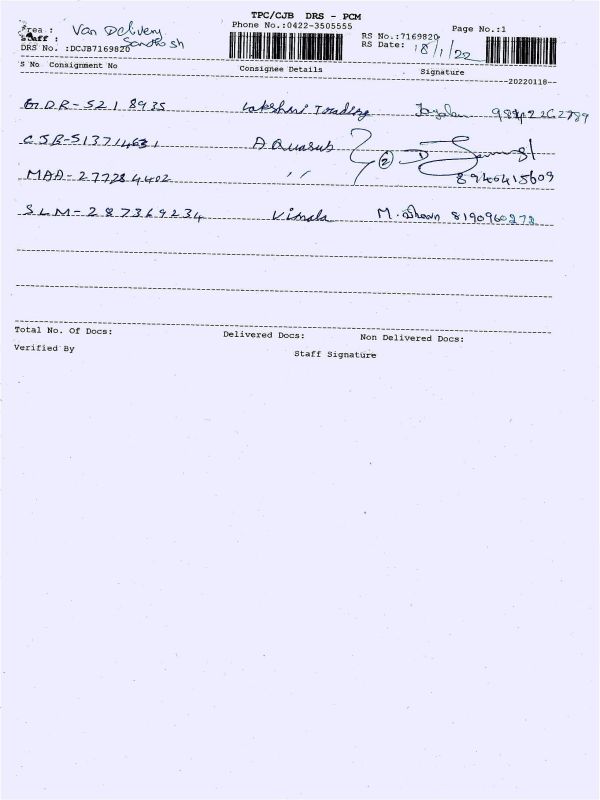 TPC/CJB DRS - PCM
Area : Van Delivery Phone No.:0422-3505555 RS No.:7169820 Page No.:1
Staff : Santhosh RS Date: 18/1/22
DRS No. :DCJB7169820
S No Consignment No Consignee Details Signature
20220118
5218935 Lakshmi Trading
CJB-513714631 Aquasub (2)
MAA-277284402 ,, 8940415609
SLM-287369234 Vimala M. 8190960272
Total No. Of Docs: Delivered Docs: Non Delivered Docs:
Verified By Staff Signature